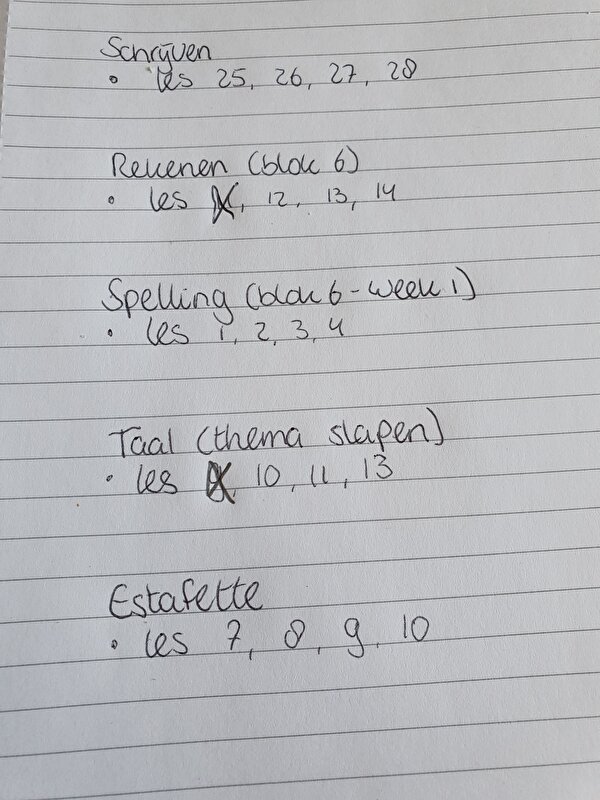 Schrijven
• les 25, 26, 27, 28
Rekenen (blok 6)
• les , 12, 13, 14
Spelling (blok 6 - week 1)
• les 1, 2, 3, 4
Taal (thema slapen)
• les 10, 11, 13
Estafette
• les 7, 8, 9, 10